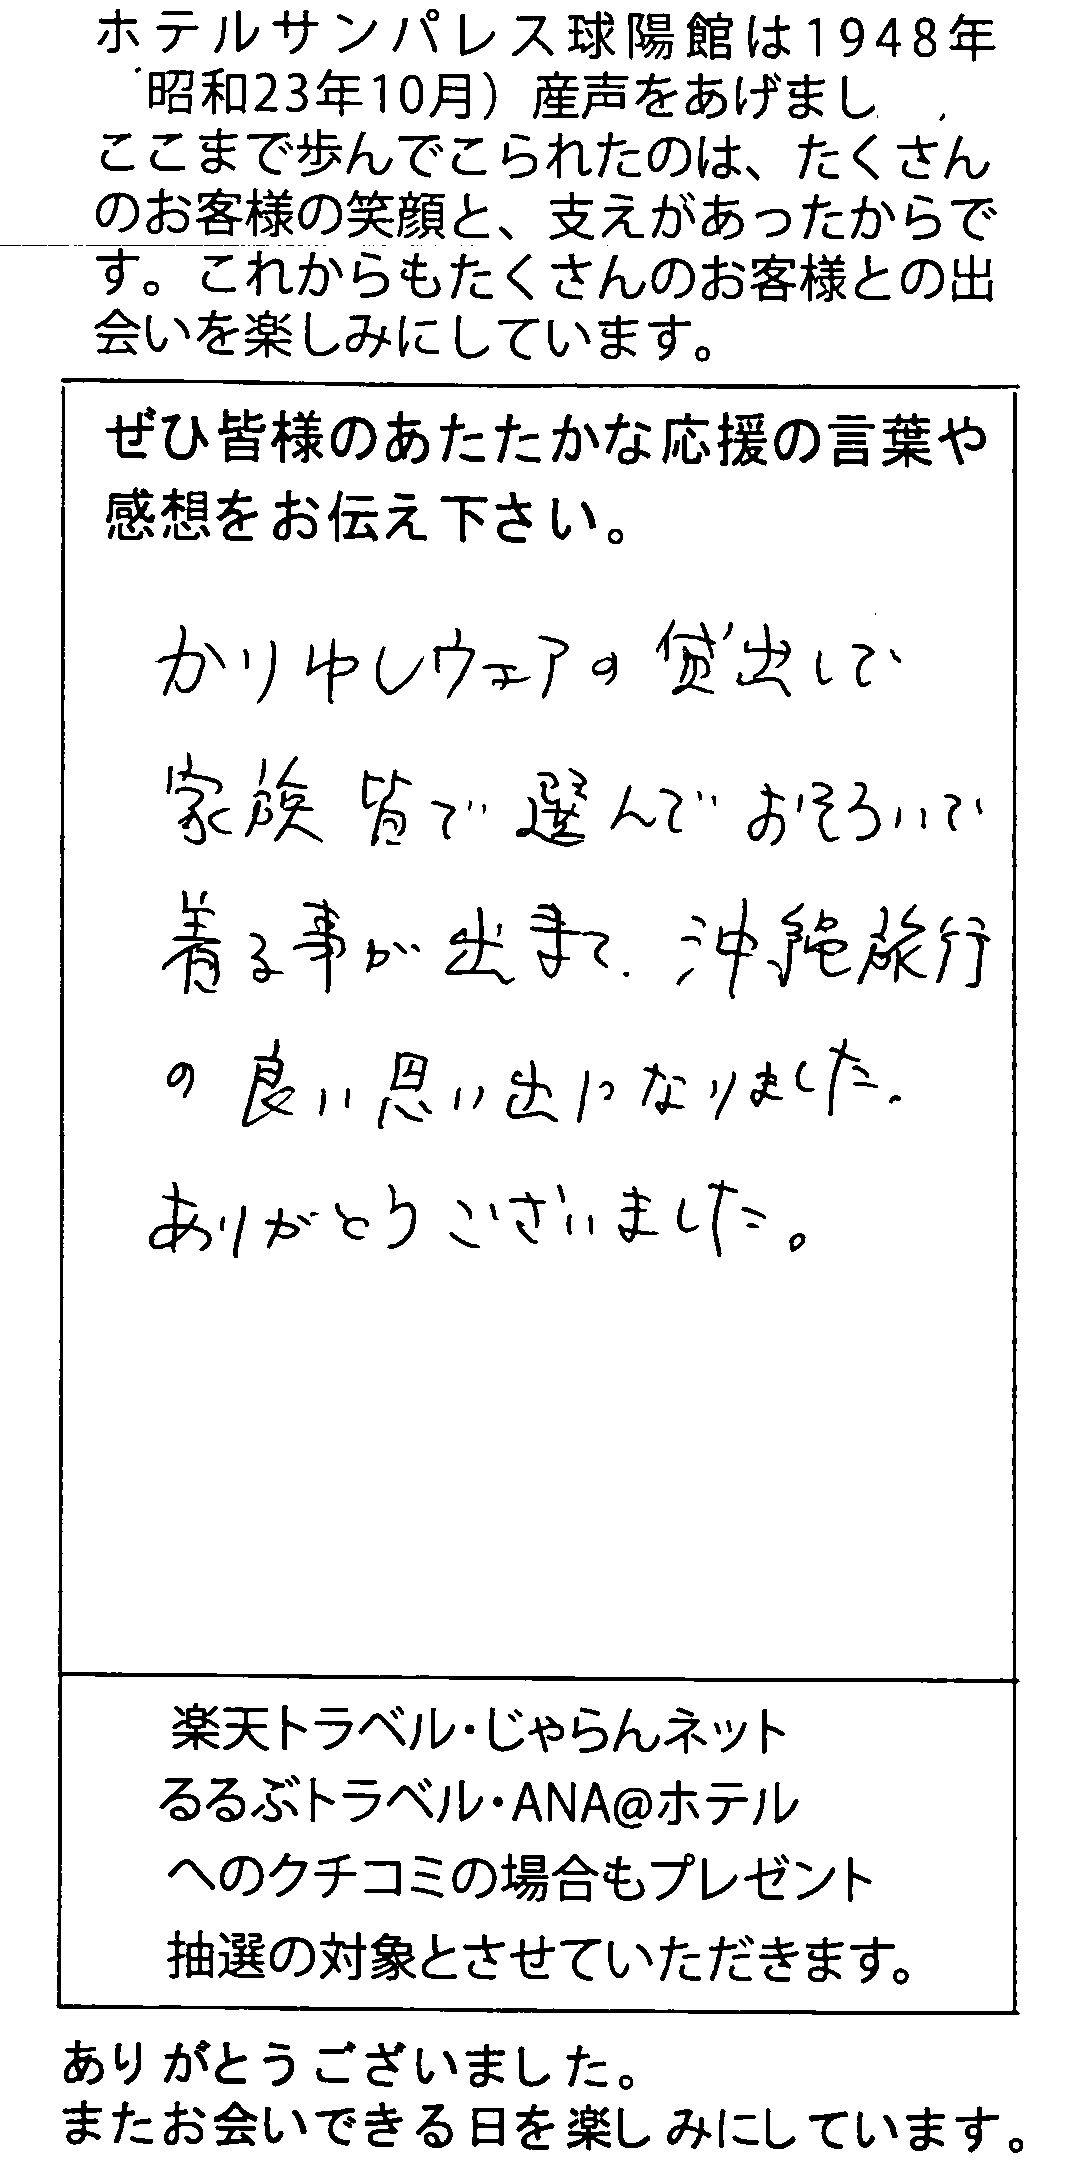 ホテルサンパレス球陽館は1948年
昭和23年10月）産声をあげまし
ここまで歩んでこられたのは、たくさん
のお客様の笑顔と、支えがあったからで
す。これからもたくさんのお客様との出
会いを楽しみにしています。
ぜひ皆様のあたたかな応援の言葉や
感想をお伝え下さい。
かりゆしウェアの貸出しで
家族皆で選んでおそろいで
着る事が出来て、沖縄旅行
の良い思い出になりました。
ありがとうございました。
楽天トラベル・じゃらんネット
るるぶトラベル・ANA@ホテル
へのクチコミの場合もプレゼント
抽選の対象とさせていただきます。
ありがとうございました。
またお会いできる日を楽しみにしています。